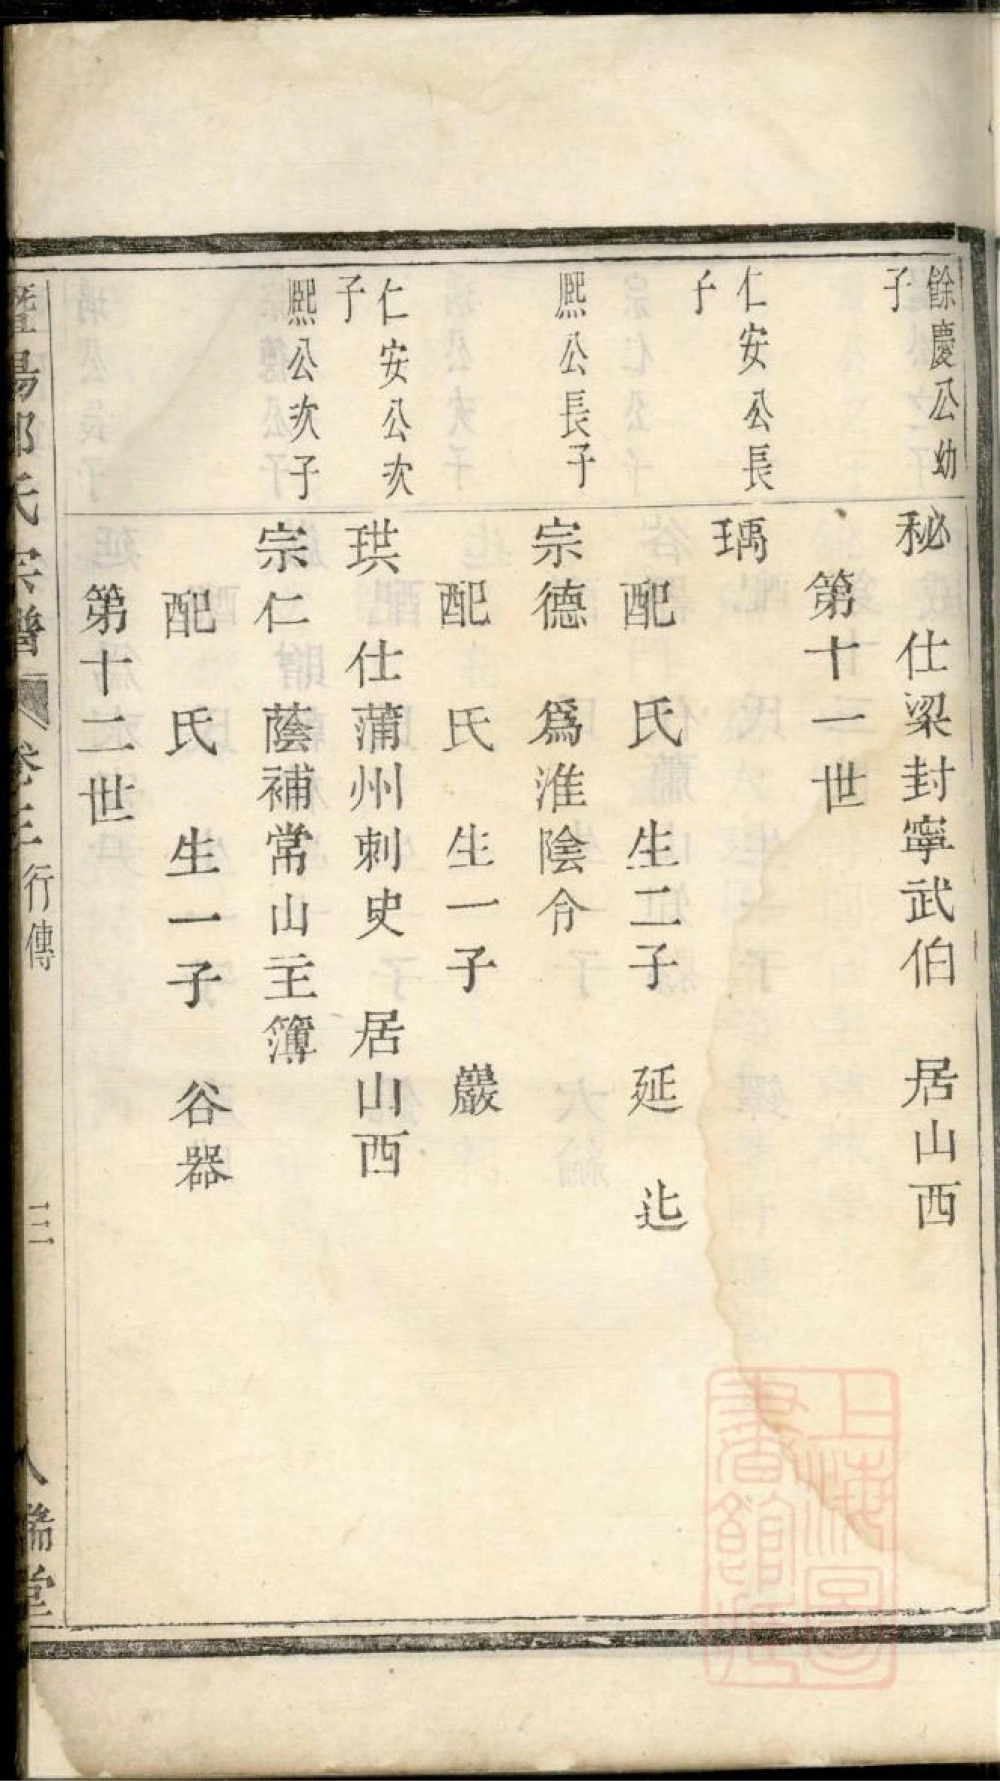 餘慶公幼
子
秘 仕梁封寧武伯 居山西
第十一世
仁安公長
子
瑀
配 氏 生二子 延 𨑖
熈公長子
宗德 爲淮陰令
配 氏 生一子 巖
仁安公次
子
珙 仕蒲州刺史 居山西
熈公次子
宗仁 蔭補常山主簿
配 氏 生一子 谷器
第十二世
暨陽 氏宗譜 卷三 行傳 三 八 堂
上海圖
書館藏